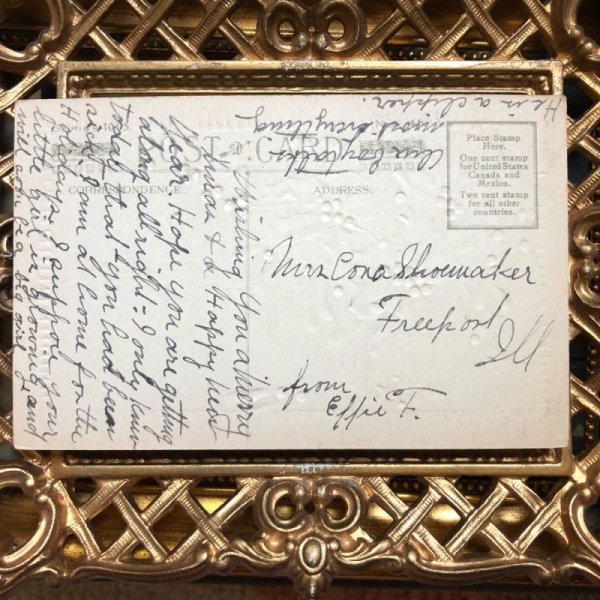 Wishing You a Merry
Xmas & a Happy New
Year. Hope you are getting
along all right - I only knew
today that you had been
sick. Am at home for the
Holidays. I suppose your
little girl is growing and
will soon be a big girl.
Our boy talks
most everything
He is a clipper.
POST CARD
CORRESPONDENCE
ADDRESS.
Place Stamp
Here.
One cent stamp
for United States
Canada and
Mexico.
Two cent stamp
for all other
countries.
Mrs Cora Shoemaker
Freeport
Ill
from
Effie F.